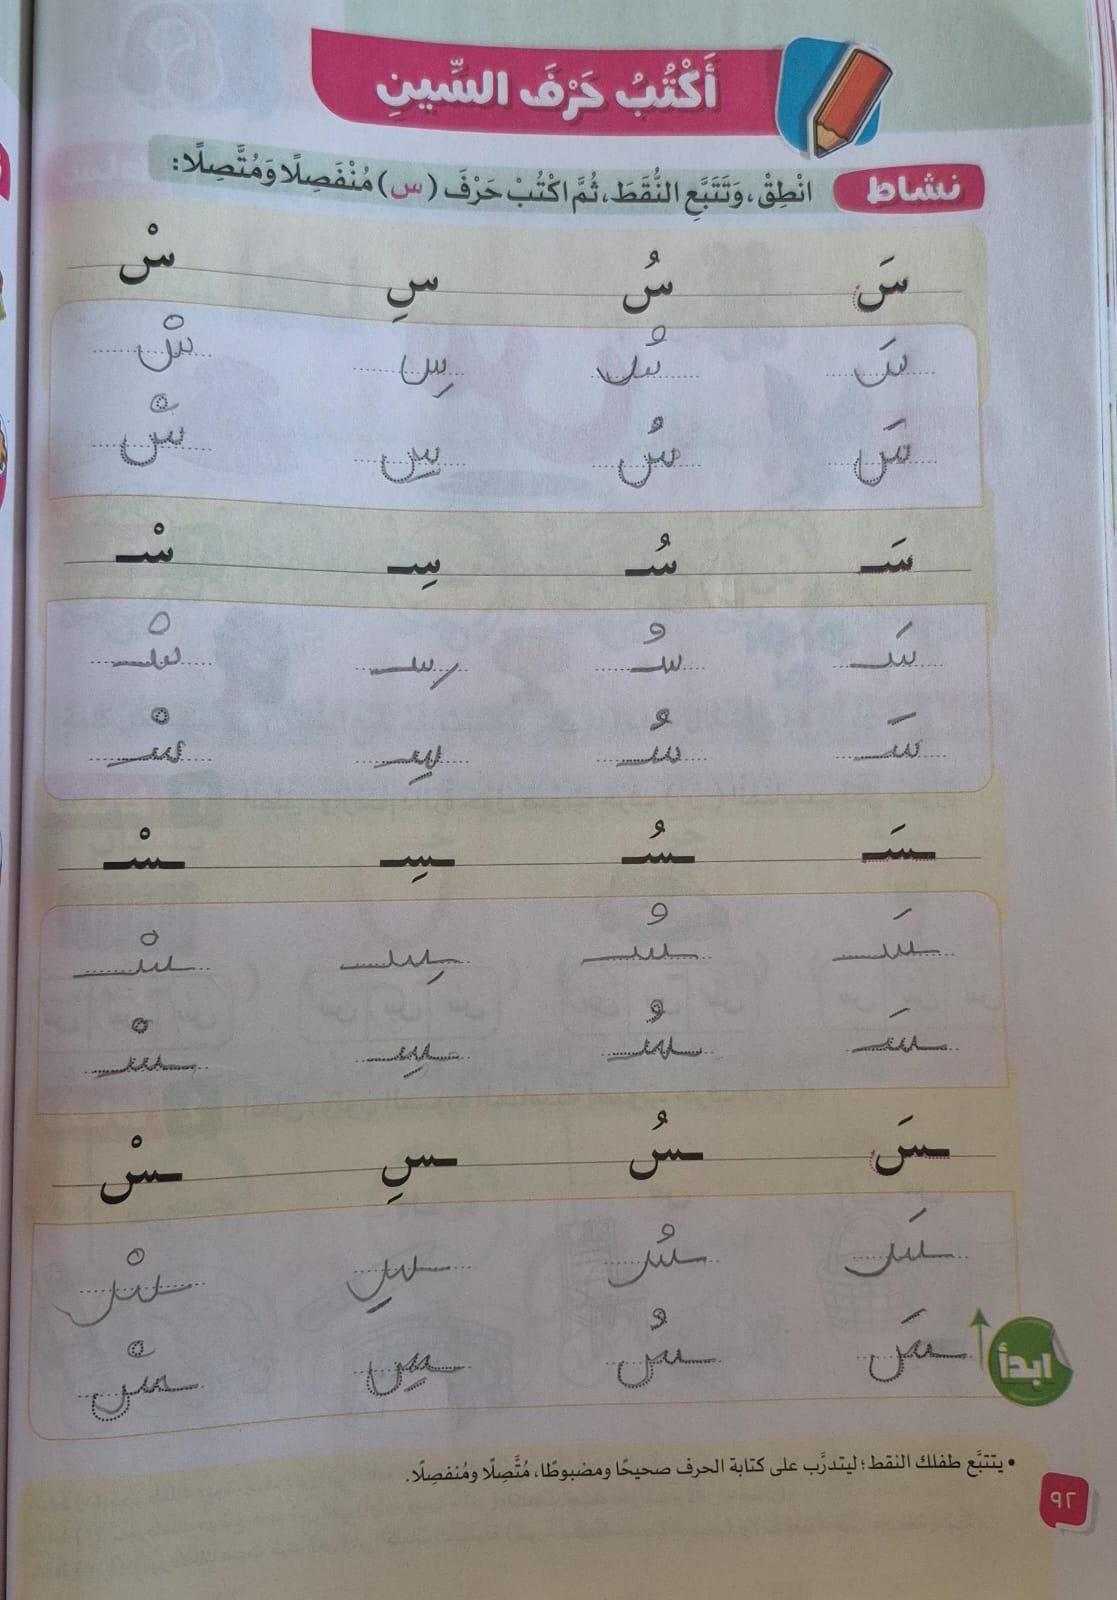 أَكْتُبُ حَرْفَ السِّينِ
نشاط انْطِقْ، وَتَتَبَّعِ النُّقَطَ، ثُمَّ اكْتُبْ حَرْفَ (س) مُنْفَصِلًا وَمُتَّصِلًا:
سَ سُ سِ سْ
سَ سُ سِ سْ
سَ سُ سِ سْ
سَـ سُـ سِـ سْـ
سَـ سُـ سِـ سْـ
سَـ سُـ سِـ سْـ
ـسَـ ـسُـ ـسِـ ـسْـ
ـسَـ ـسُـ ـسِـ ـسْـ
ـسَـ ـسُـ ـسِـ ـسْـ
ـسَ ـسُ ـسِ ـسْ
ـسَ ـسُ ـسِ ـسْ
ـسَ ـسُ ـسِ ـسْ
ابدأ
• يتتبَّع طفلك النقط؛ ليتدرَّب على كتابة الحرف صحيحًا ومضبوطًا، مُتَّصِلًا ومُنفصِلًا.
٩٢